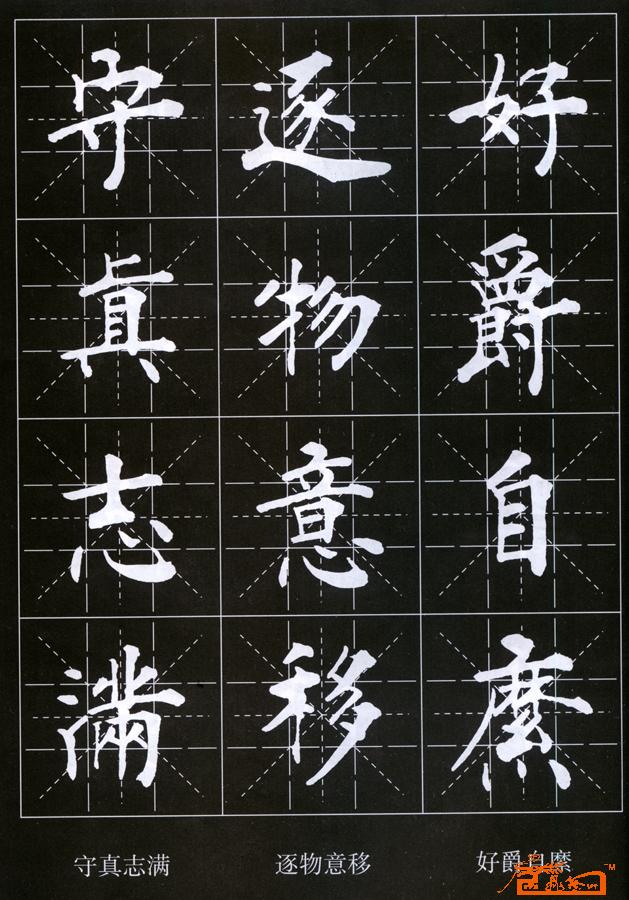 守眞志滿
逐物意移
好爵自縻
守真志满
逐物意移
好爵自縻
TM